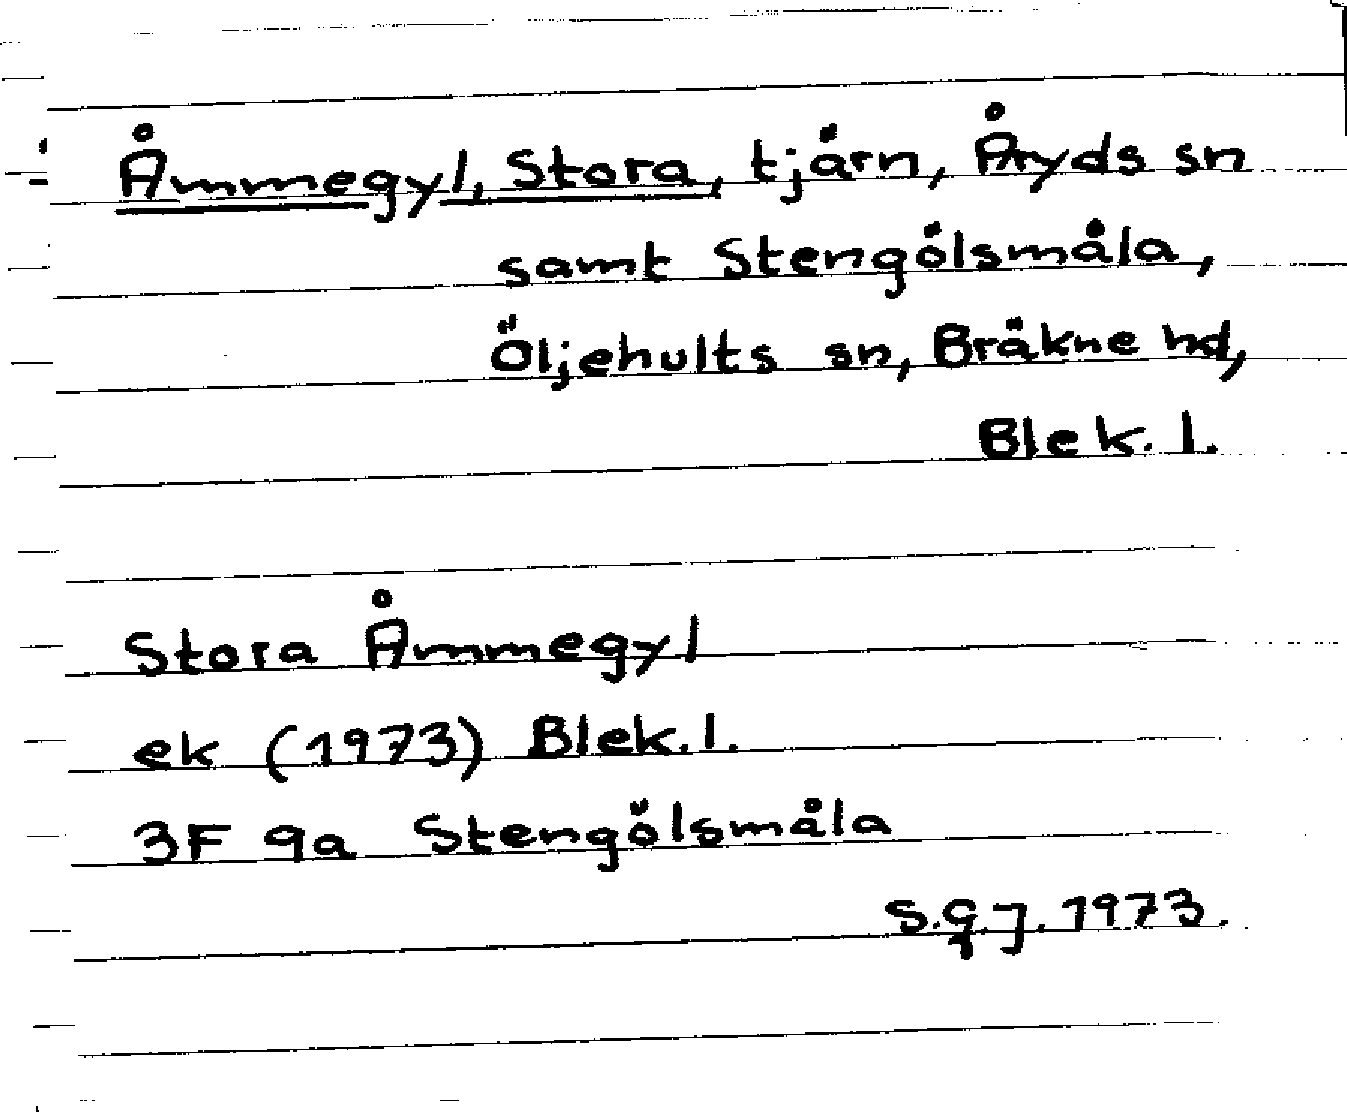 Åmmegyl, Stora, tjärn, Åryds sn
samt Stengölsmåla,
Öljehults sn, Bräkne hd,
Blek. l.
Stora Åmmegyl
ek (1973) Blek. l.
3F 9a Stengölsmåla
S.G.J. 1973.